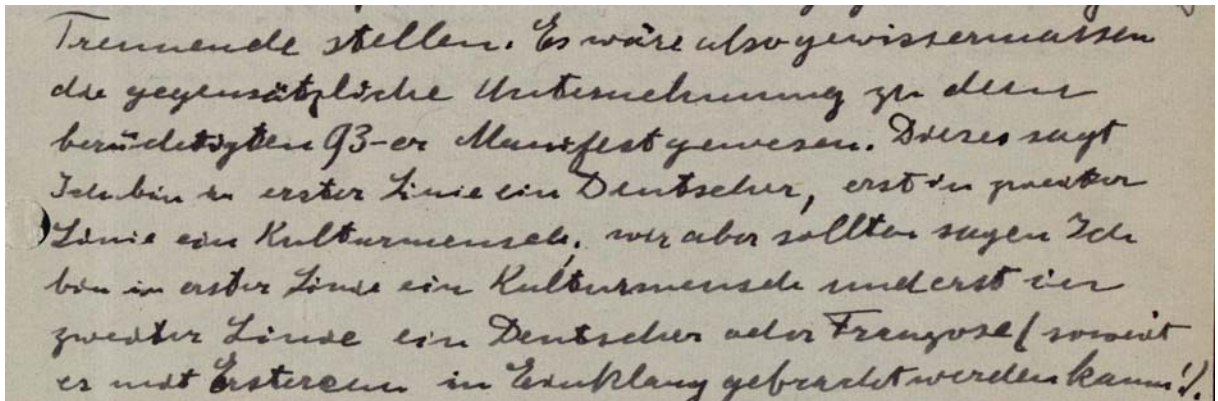 Trennende stellen. Es wäre also gewissermassen
die gegensätzliche Unternehmung zu dem
berüchtigten 93-er Manifest gewesen. Dieses sagt
Ich bin in erster Linie ein Deutscher, erst in zweiter
Linie ein Kulturmensch; wir aber sollten sagen Ich
bin in erster Linie ein Kulturmensch und erst in
zweiter Linie ein Deutscher oder Franzose (soweit
es mit Ersterem in Einklang gebracht werden kann!).